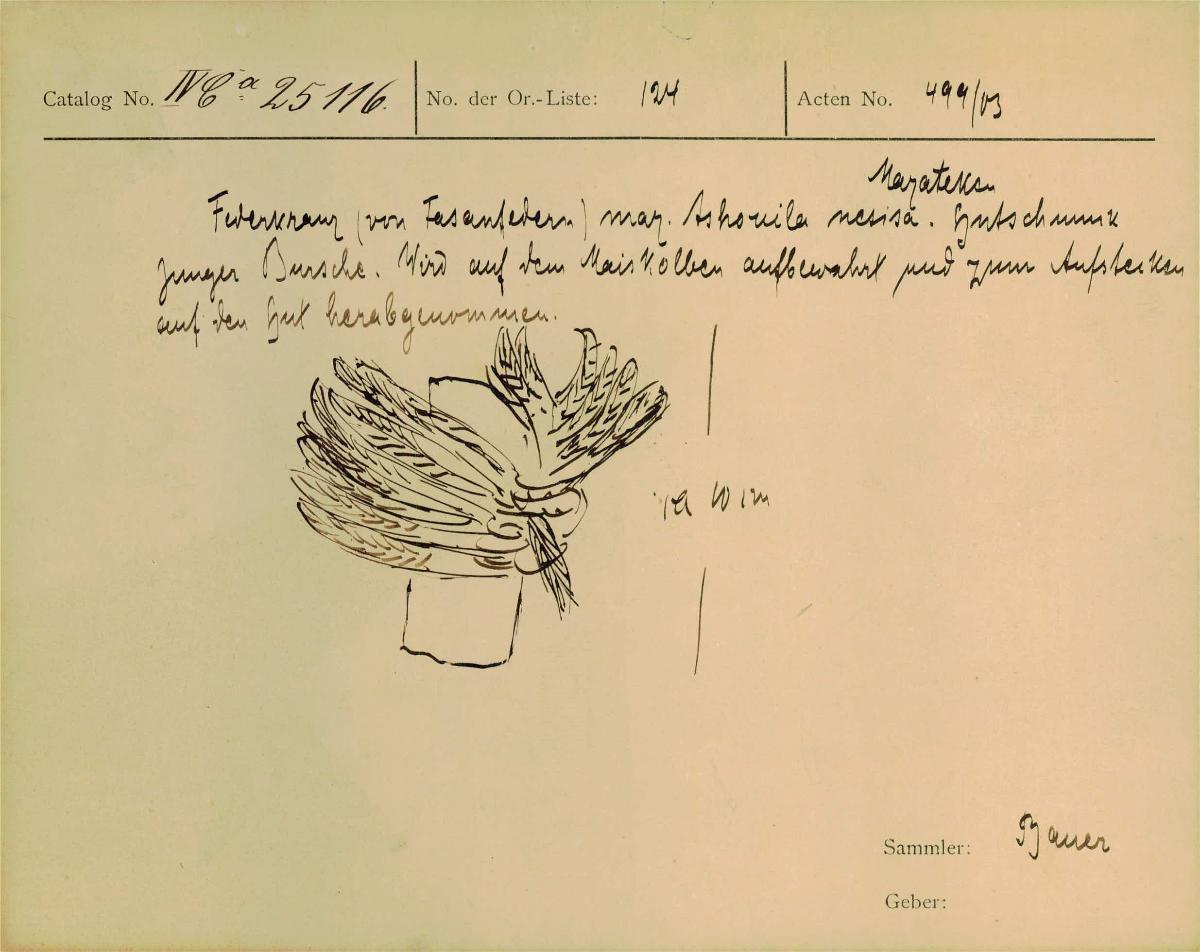 Catalog No. IV Ca 25116. No. der Or.-Liste: 124 Acten No. 499/03
Mazateken
Federkranz (von Fasanfedern) maz. nesisa. Hutschmuck
junger Bursche. Wird auf dem Maiskolben aufbewahrt und zum Aufstecken
auf den Hut herabgenommen.
ca 10 cm
Sammler: Bauer
Geber: